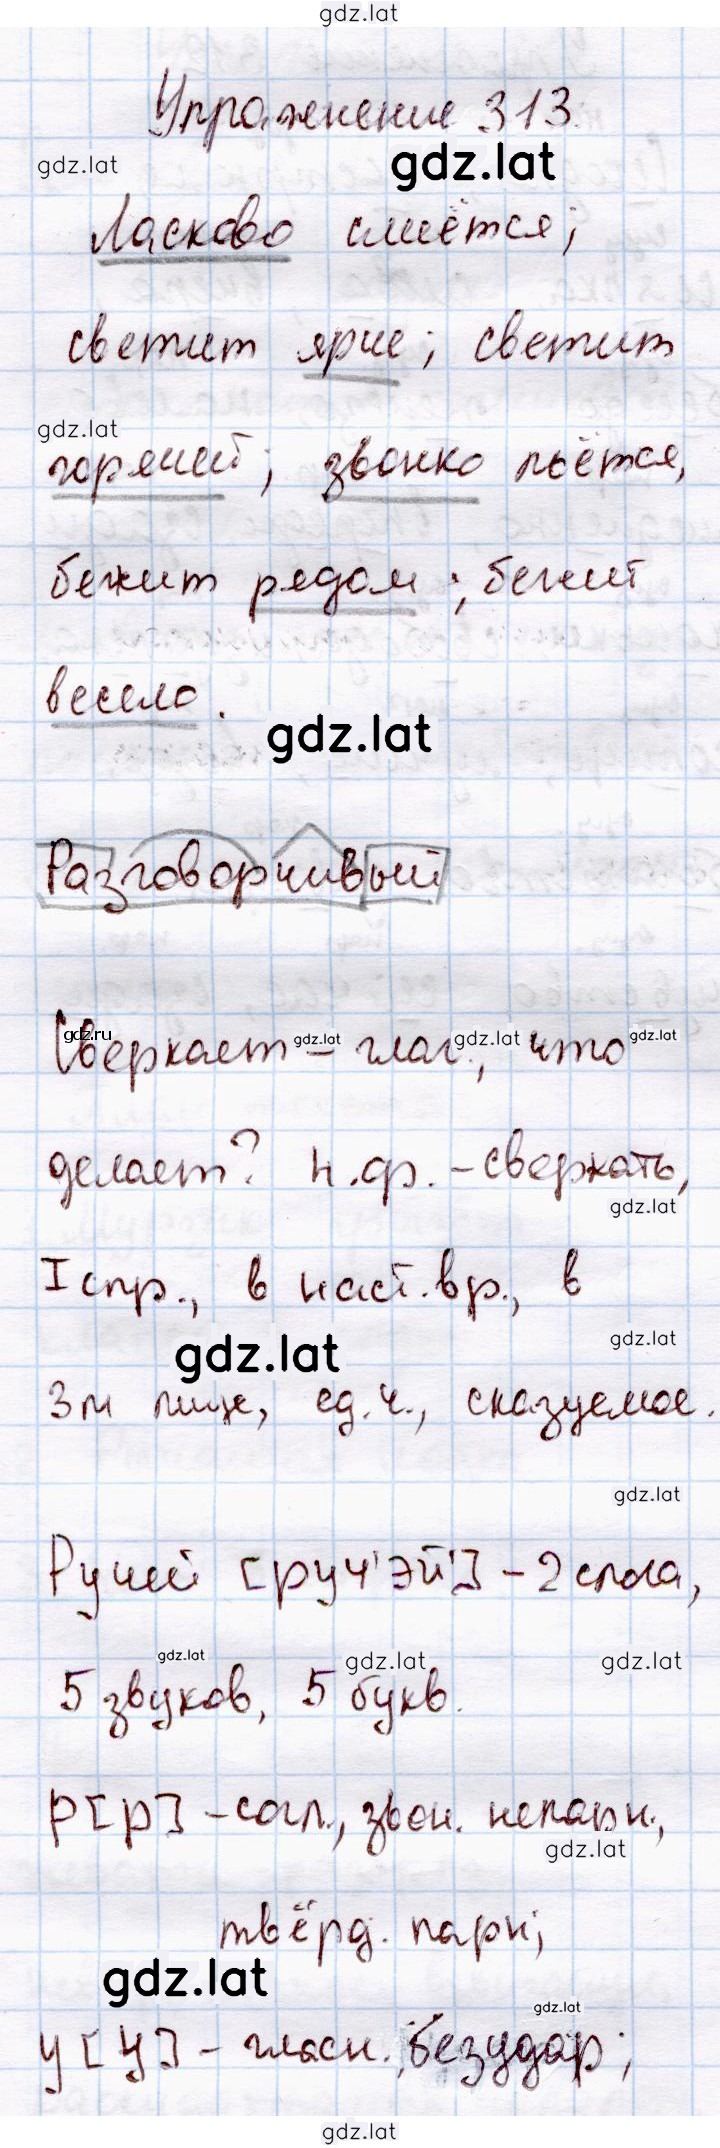 gdz.lat
Упражнение 313.
gdz.lat gdz.lat
Ласково смеётся;
светит ярче; светит
gdz.lat
горячей; звонко льётся,
бежит рядом; бежит
весело.
gdz.lat
Разговорчивый
gdz.ru gdz.lat gdz.lat gdz.lat
Сверкает – глаг., что
делает? н.ф. – сверкать,
gdz.lat
I спр., в наст. вр., в
gdz.lat gdz.lat
3м лице, ед.ч., сказуемое.
gdz.lat
Ручей [руч'эй'] – 2 слога,
gdz.lat gdz.lat gdz.lat
5 звуков, 5 букв.
р [р] – согл., звон. непарн.,
gdz.lat
твёрд. парн;
gdz.lat gdz.lat
у [у] – гласн., безудар;
gdz.lat